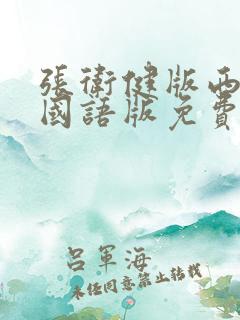 張衛健版西
國語版免費
呂軍海
未经同意禁止转载